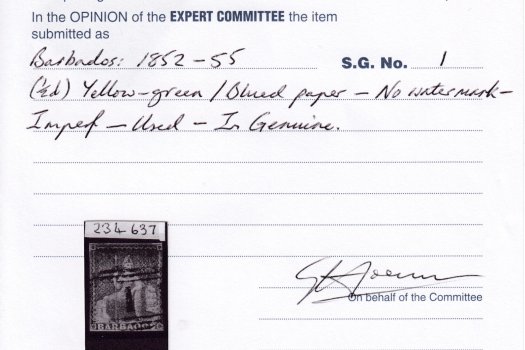 In the OPINION of the EXPERT COMMITTEE the item
submitted as
Barbados: 1852 – 55 S.G. No. 1
(½d) Yellow-green / Blued paper – No watermark –
Imperf – Used – Is Genuine.
234 637
BARBADOS
On behalf of the Committee